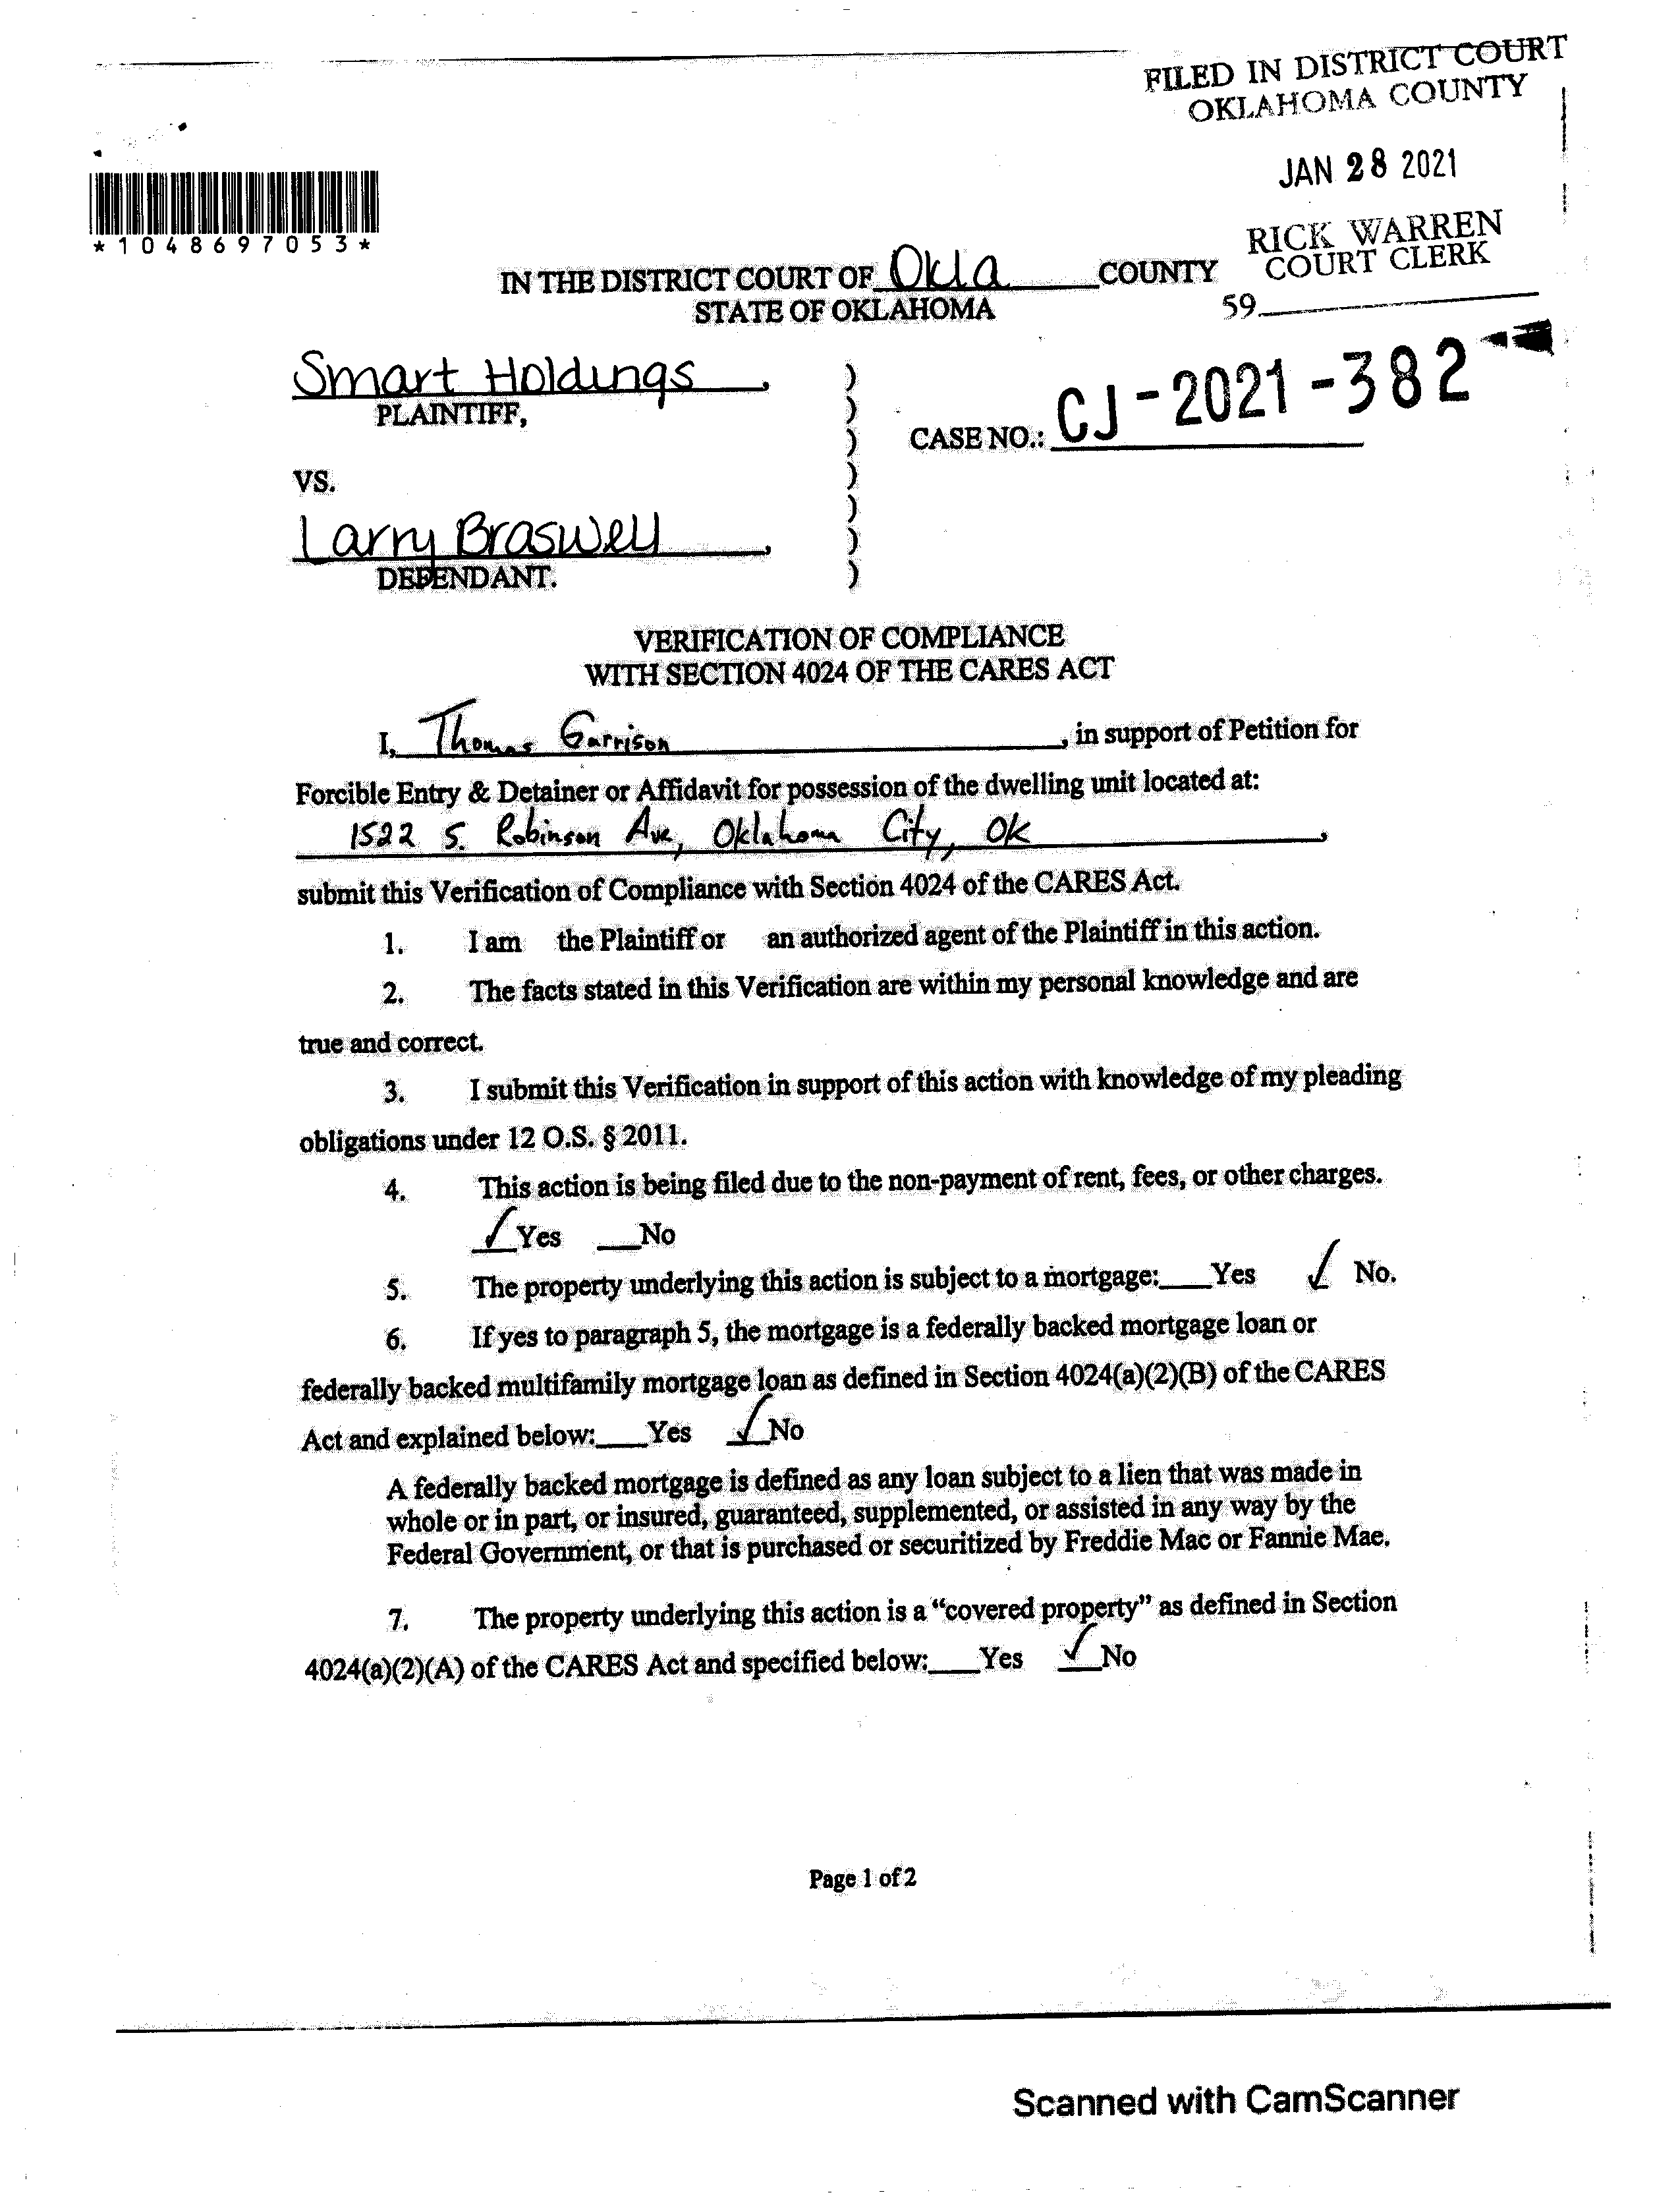 FILED IN DISTRICT COURT
OKLAHOMA COUNTY
JAN 28 2021
RICK WARREN
COURT CLERK
59
*1048697053*
IN THE DISTRICT COURT OF Okla COUNTY
STATE OF OKLAHOMA
Smart Holdings,
PLAINTIFF,
CASE NO.: CJ-2021-382
VS.
Larry Braswell,
DEFENDANT.
)
)
)
)
)
)
)
VERIFICATION OF COMPLIANCE
WITH SECTION 4024 OF THE CARES ACT
I, Thomas Garrison, in support of Petition for
Forcible Entry & Detainer or Affidavit for possession of the dwelling unit located at:
1522 S. Robinson Ave, Oklahoma City, OK,
submit this Verification of Compliance with Section 4024 of the CARES Act.
1. I am the Plaintiff or an authorized agent of the Plaintiff in this action.
2. The facts stated in this Verification are within my personal knowledge and are
true and correct.
3. I submit this Verification in support of this action with knowledge of my pleading
obligations under 12 O.S. § 2011.
4. This action is being filed due to the non-payment of rent, fees, or other charges.
✓Yes ___No
5. The property underlying this action is subject to a mortgage:___Yes ✓ No.
6. If yes to paragraph 5, the mortgage is a federally backed mortgage loan or
federally backed multifamily mortgage loan as defined in Section 4024(a)(2)(B) of the CARES
Act and explained below:___Yes ✓No
A federally backed mortgage is defined as any loan subject to a lien that was made in
whole or in part, or insured, guaranteed, supplemented, or assisted in any way by the
Federal Government, or that is purchased or securitized by Freddie Mac or Fannie Mae.
7. The property underlying this action is a “covered property” as defined in Section
4024(a)(2)(A) of the CARES Act and specified below:___Yes ✓No
Page 1 of 2
Scanned with CamScanner